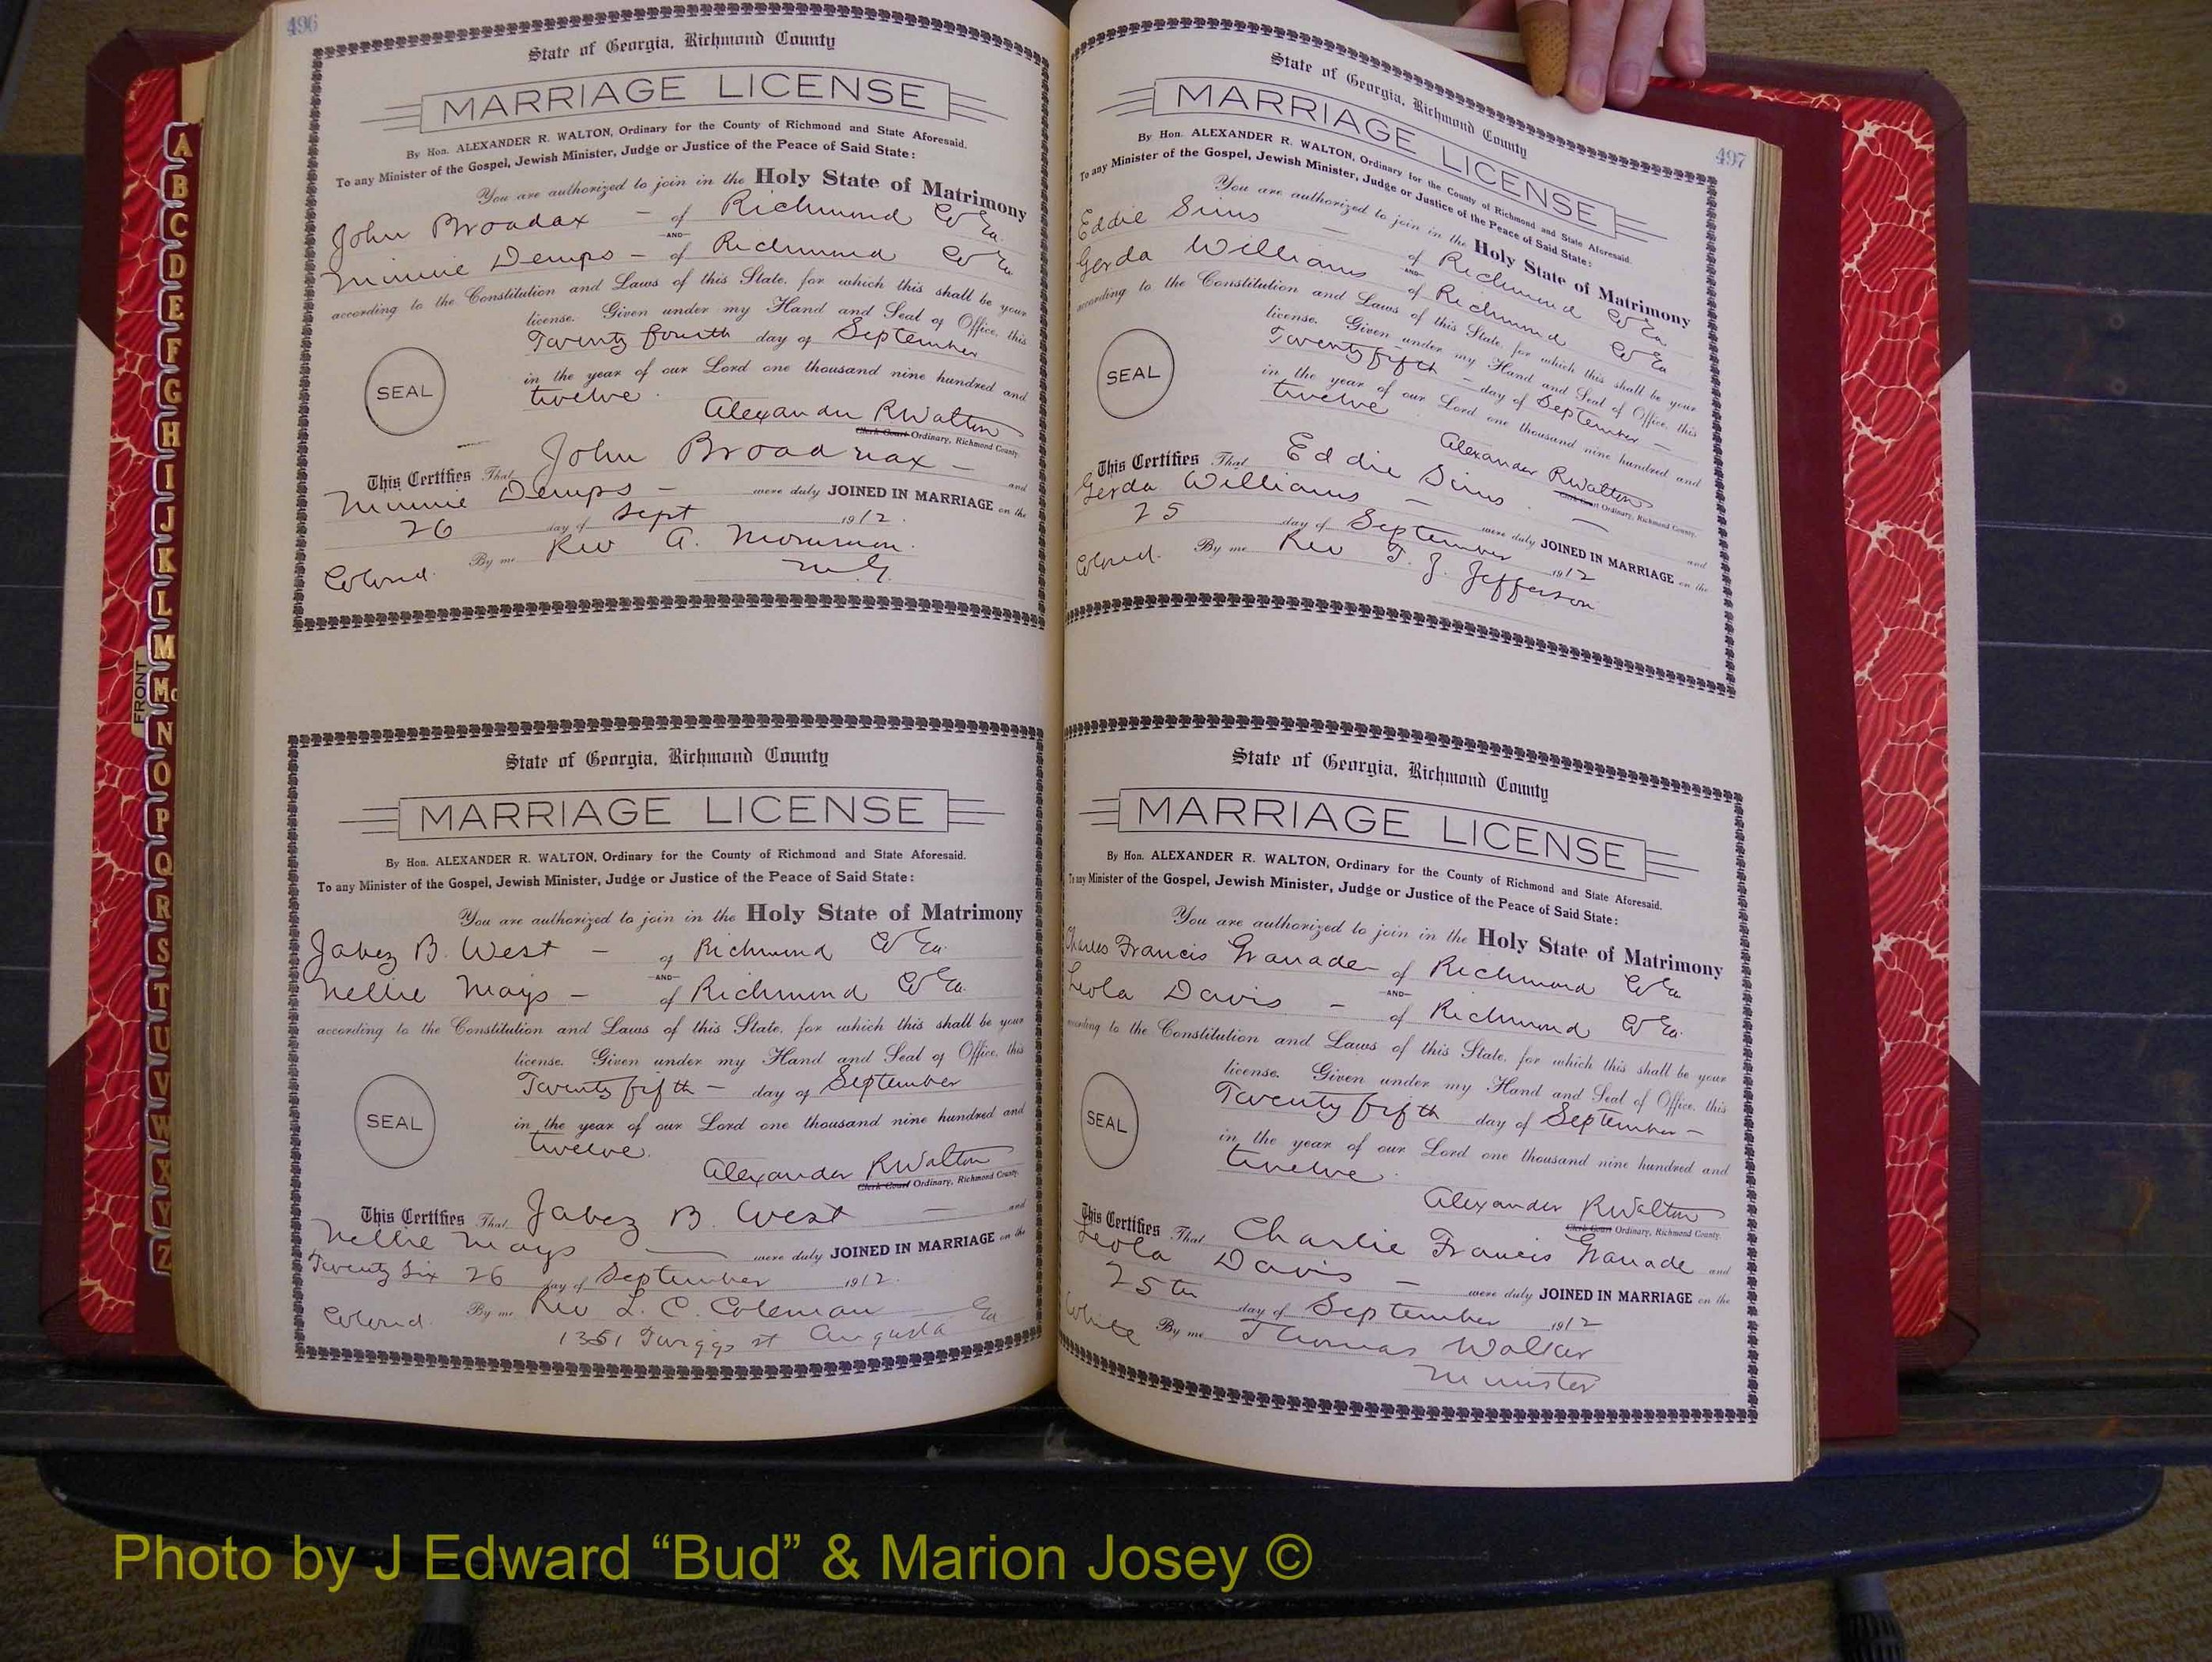 496
State of Georgia, Richmond County
MARRIAGE LICENSE
By Hon. ALEXANDER R. WALTON, Ordinary for the County of Richmond and State Aforesaid.
To any Minister of the Gospel, Jewish Minister, Judge or Justice of the Peace of Said State:
You are authorized to join in the Holy State of Matrimony
John Broadax - of Richmond Co Ga.
AND
Minnie Demps - of Richmond Co Ga
according to the Constitution and Laws of this State, for which this shall be your
license. Given under my Hand and Seal of Office, this
Twenty fourth day of September
in the year of our Lord one thousand nine hundred and
twelve.
SEAL
Alexander R Walton
Clerk Court Ordinary, Richmond County.
This Certifies That John Broadnax - and
Minnie Demps - were duly JOINED IN MARRIAGE on the
26 day of Sept 1912.
Colored. By me Rev A.
M.G.
State of Georgia, Richmond County
MARRIAGE LICENSE
By Hon. ALEXANDER R. WALTON, Ordinary for the County of Richmond and State Aforesaid.
To any Minister of the Gospel, Jewish Minister, Judge or Justice of the Peace of Said State:
You are authorized to join in the Holy State of Matrimony
Jabez B. West - of Richmond Co Ga.
AND
Nellie Mays - of Richmond Co Ga.
according to the Constitution and Laws of this State, for which this shall be your
license. Given under my Hand and Seal of Office, this
Twenty fifth - day of September
in the year of our Lord one thousand nine hundred and
twelve.
SEAL
Alexander R Walton
Clerk Court Ordinary, Richmond County.
This Certifies That Jabez B. West - and
Nellie Mays - were duly JOINED IN MARRIAGE on the
Twenty Six 26 day of September 1912.
Colored. By me Rev L. C. Coleman
1351 Twiggs st Augusta Ga
497
State of Georgia, Richmond County
MARRIAGE LICENSE
By Hon. ALEXANDER R. WALTON, Ordinary for the County of Richmond and State Aforesaid.
To any Minister of the Gospel, Jewish Minister, Judge or Justice of the Peace of Said State:
You are authorized to join in the Holy State of Matrimony
Eddie Sims - of Richmond Co Ga.
AND
Gerda Williams of Richmond Co Ga
according to the Constitution and Laws of this State, for which this shall be your
license. Given under my Hand and Seal of Office, this
Twenty fifth - day of September -
in the year of our Lord one thousand nine hundred and
twelve
SEAL
Alexander R Walton
Clerk Court Ordinary, Richmond County.
This Certifies That Eddie Sims - and
Gerda Williams - were duly JOINED IN MARRIAGE on the
25 day of September 1912
Colored. By me Rev T. J. Jefferson
State of Georgia, Richmond County
MARRIAGE LICENSE
By Hon. ALEXANDER R. WALTON, Ordinary for the County of Richmond and State Aforesaid.
To any Minister of the Gospel, Jewish Minister, Judge or Justice of the Peace of Said State:
You are authorized to join in the Holy State of Matrimony
Charles Francis Granade - of Richmond Co Ga
AND
Leola Davis - of Richmond Co Ga.
according to the Constitution and Laws of this State, for which this shall be your
license. Given under my Hand and Seal of Office, this
Twenty fifth day of September -
in the year of our Lord one thousand nine hundred and
twelve.
SEAL
Alexander R Walton
Clerk Court Ordinary, Richmond County.
This Certifies That Charlie Francis Granade and
Leola Davis - were duly JOINED IN MARRIAGE on the
25th day of September 1912
White By me Thomas Walker
Minister
A
B
C
D
E
F
G
H
I
J
K
L
M
Mc
N
O
P
Q
R
S
T
U
V
W
X
Y
Z
FRONT
Photo by J Edward “Bud” & Marion Josey ©